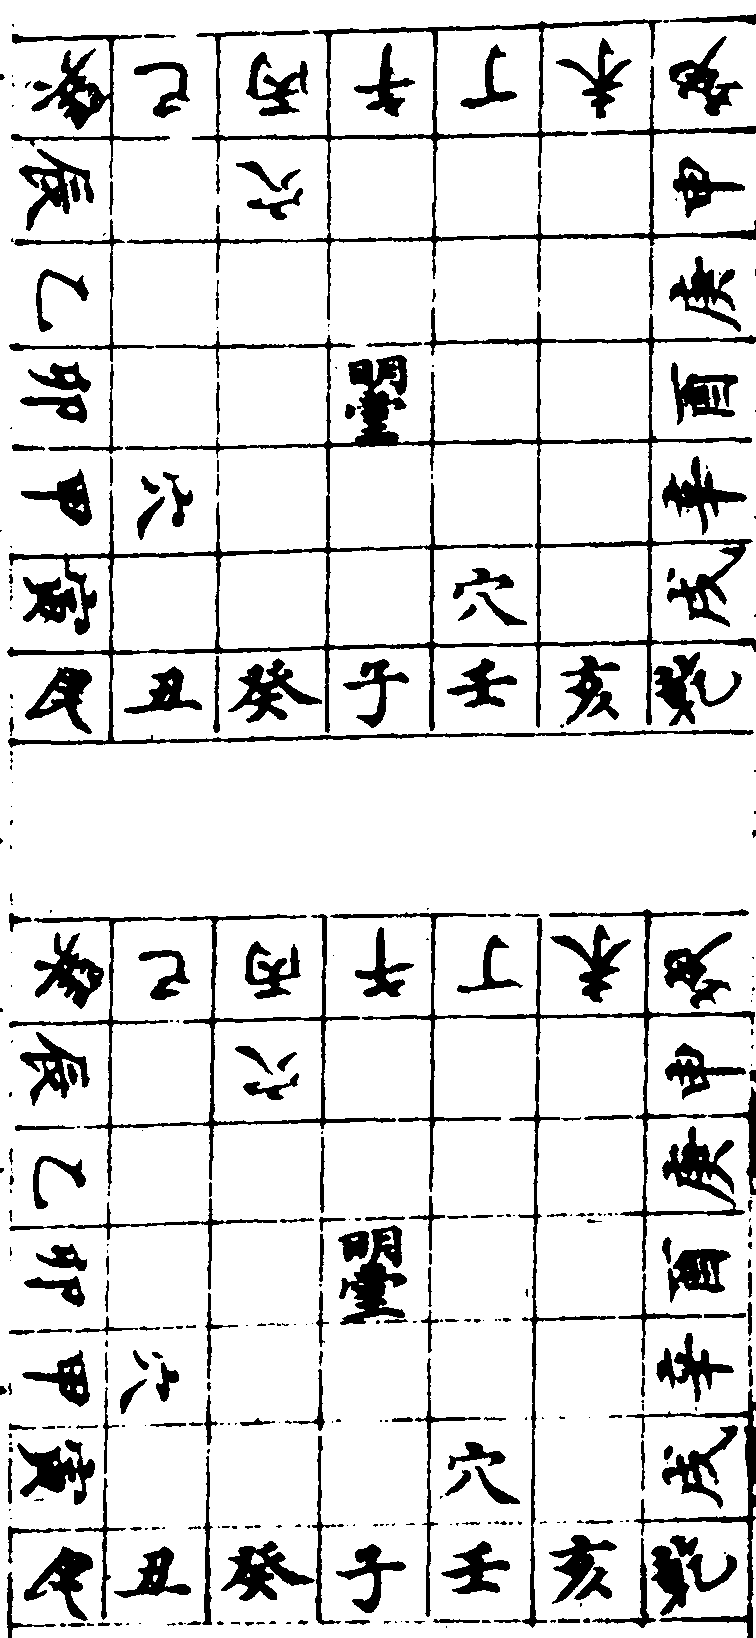 巽 巳 丙 午 丁 未 坤
辰 穴 申
乙 庚
卯 明堂 酉
甲 穴 辛
寅 穴 戌
艮 丑 癸 子 壬 亥 乾
巽 巳 丙 午 丁 未 坤
辰 穴 申
乙 庚
卯 明堂 酉
甲 穴 辛
寅 穴 戌
艮 丑 癸 子 壬 亥 乾